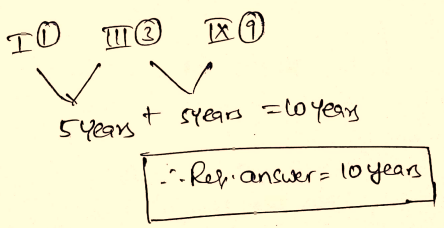 I ① III ③ IX ⑨
5 years + 5 years = 10 years
∴ Req. answer = 10 years